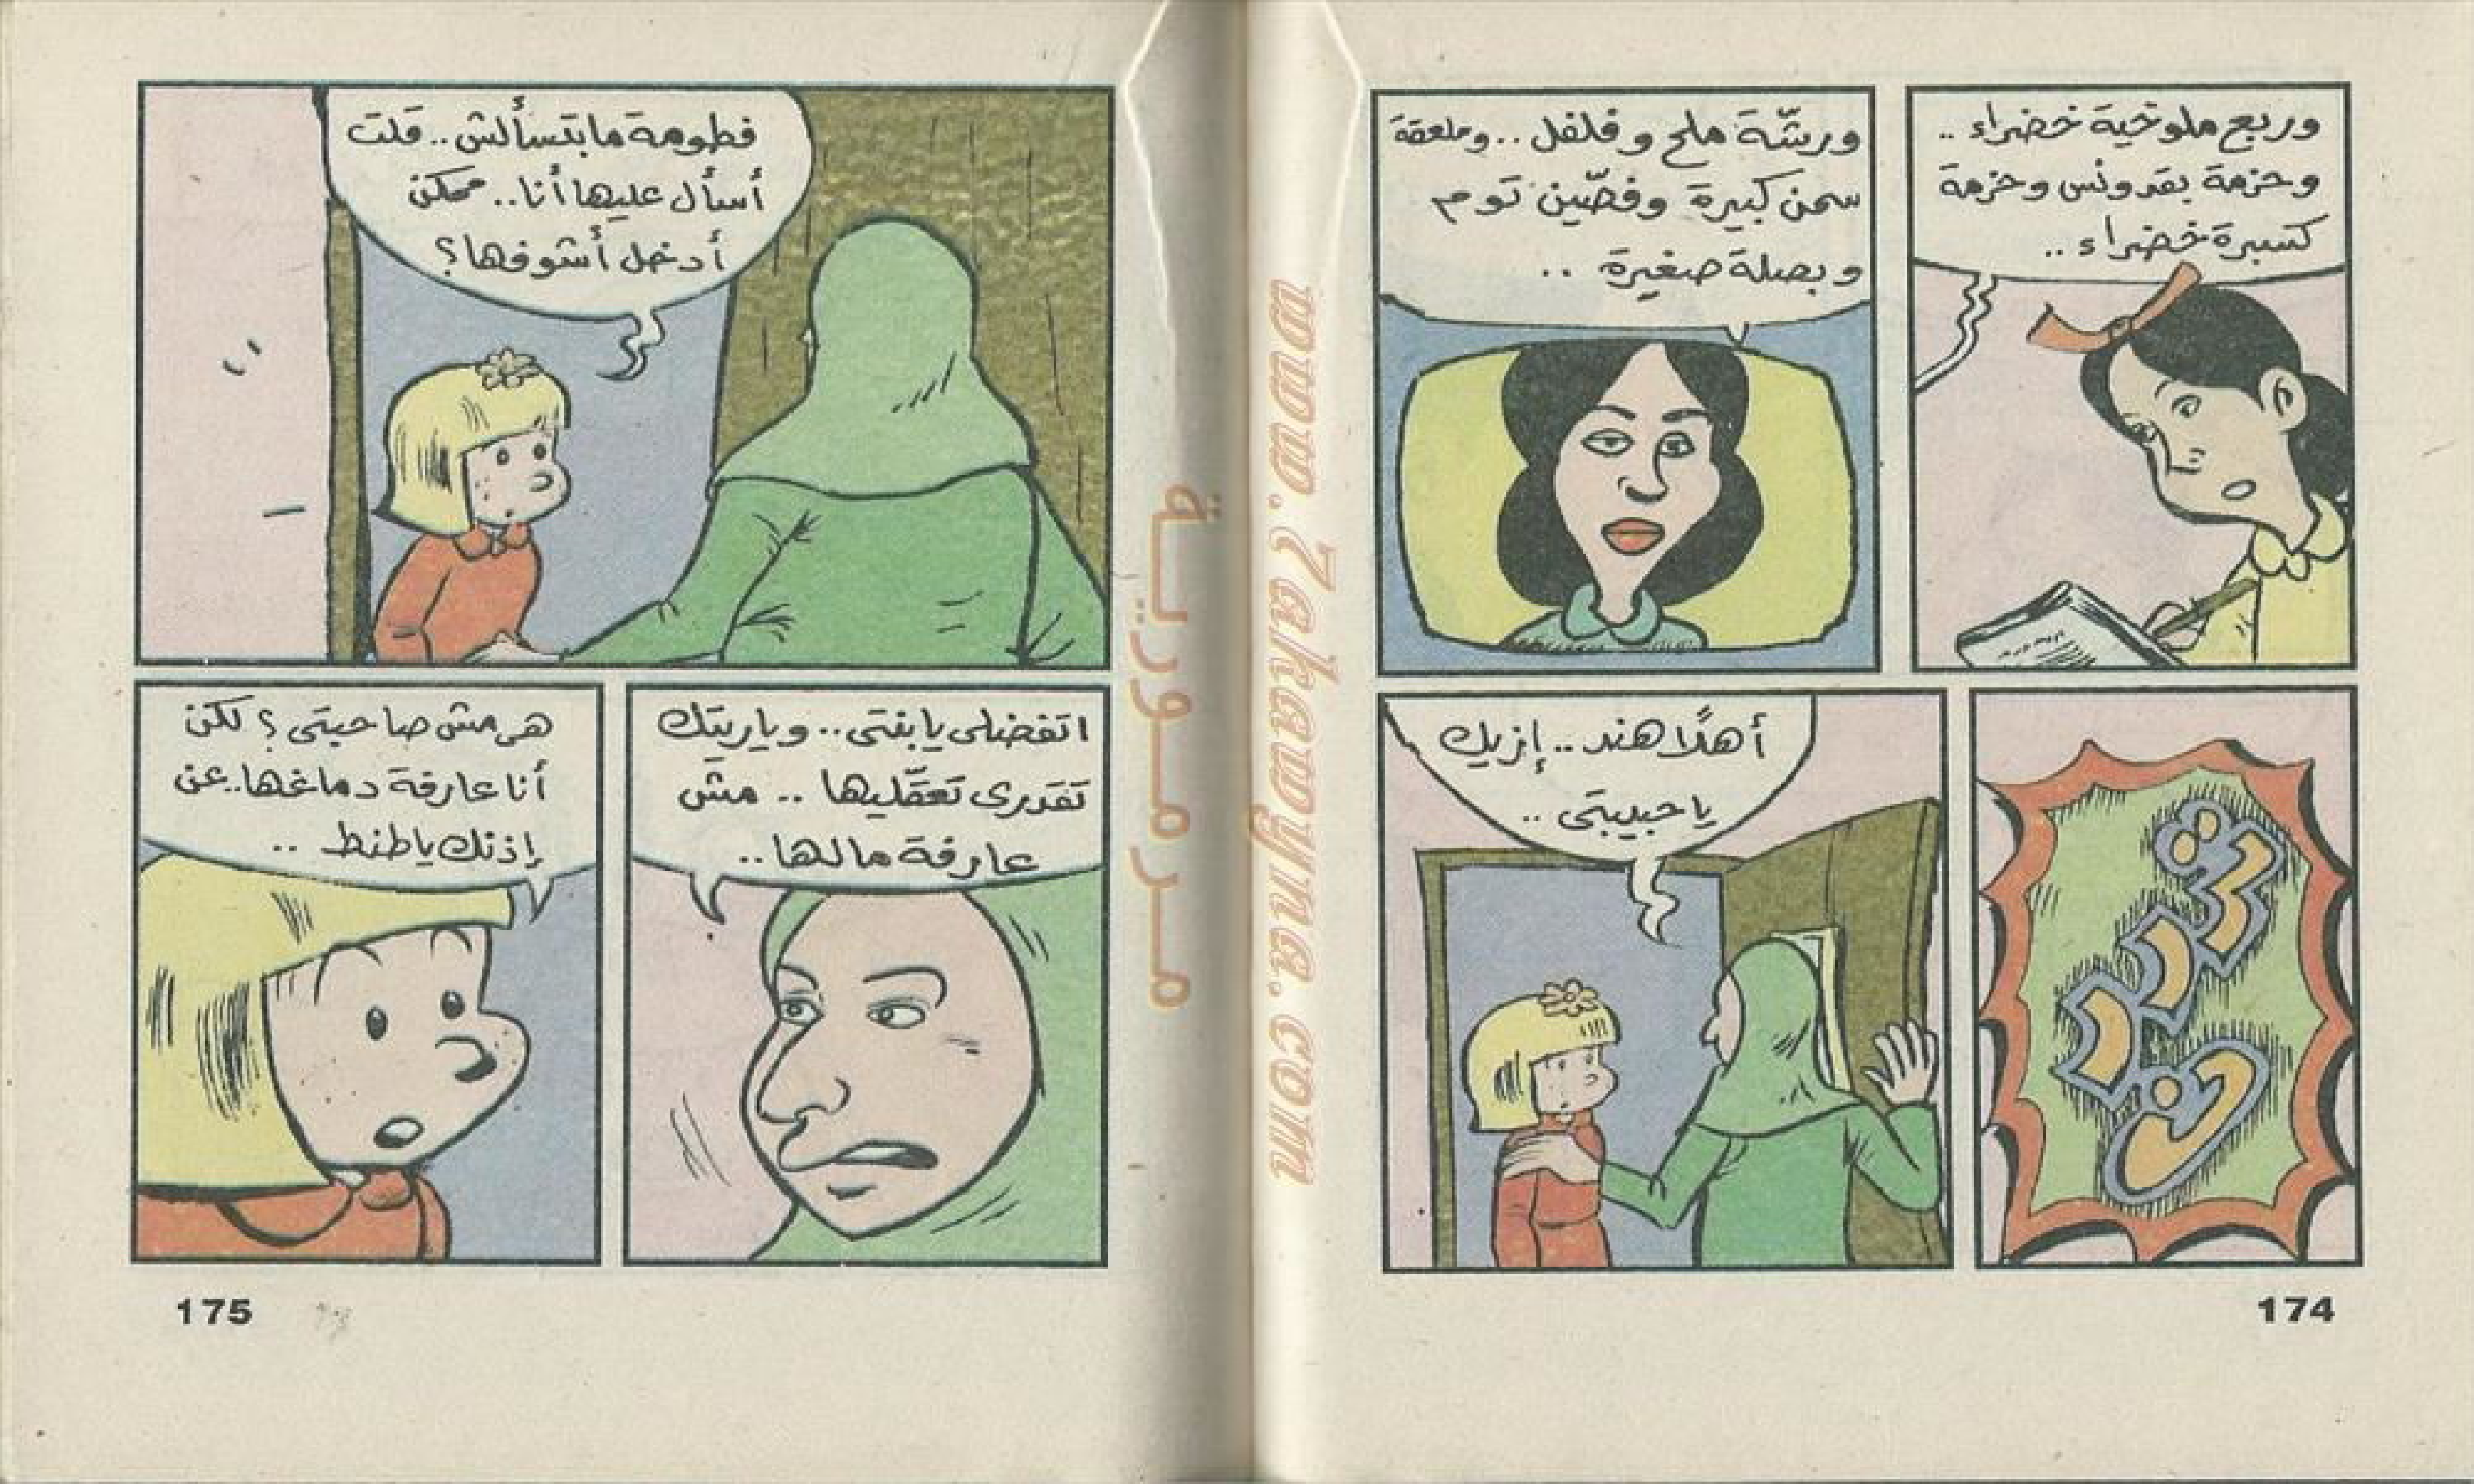 وربع ملوخية خضراء ..
وحزمة بقدونس وحزمة
كسبرة خضراء ..
ورشّة ملح وفلفل .. وملعقة
سمن كبيرة وفصّين توم
وبصلة صغيرة ..
ترررن
أهلًا هند .. إزيك
يا حبيبتى ..
174
فطومة ما بتسألش .. قلت
أسأل عليها أنا .. ممكن
أدخل أشوفها؟
اتفضلى يا بنتى .. وياريتك
تقدرى تعقّليها .. مش
عارفة مالها ..
هى مش صاحبتى؟ لكن
أنا عارفة دماغها .. عن
إذنك يا طنط ..
175
www.7akawyna.com
مرمورية